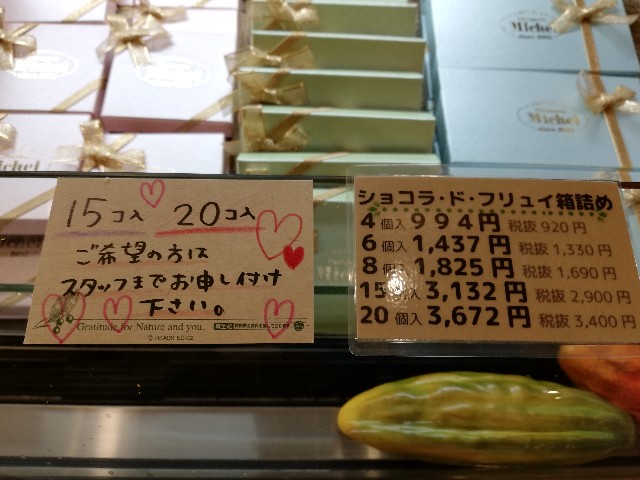 Michel
Michel
Michel
15コ入 20コ入
ご希望の方は
スタッフまでお申し付け
下さい。
Gratitude for Nature and you.
ショコラ・ド・フリュイ箱詰め
4個入994円 税抜920円
6個入1,437円 税抜1,330円
8個入1,825円 税抜1,690円
15個入3,132円 税抜2,900円
20個入3,672円 税抜3,400円